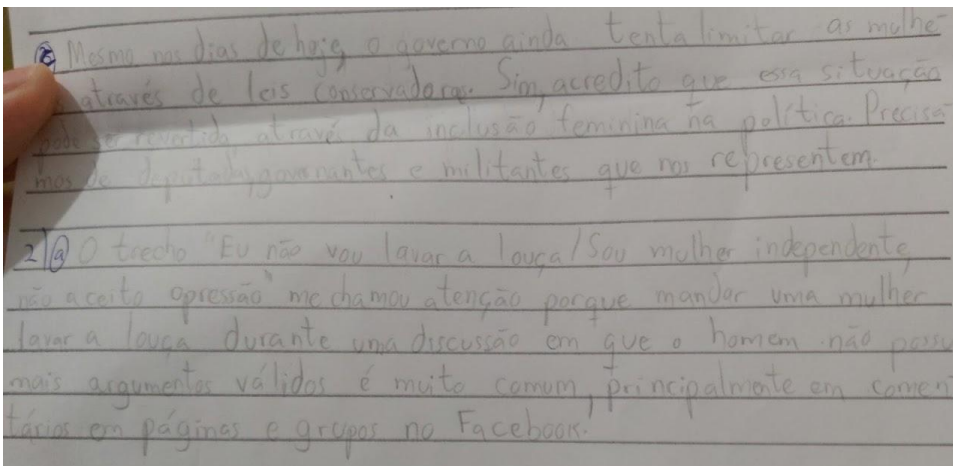 Mesmo nos dias de hoje, o governo ainda tenta limitar as mulhe
através de leis conservadoras. Sim, acredito que essa situação
pode ser revertida através da inclusão feminina na política. Precisa
mos de deputadas, governantes e militantes que nos representem.
2) a O trecho "Eu não vou lavar a louça/Sou mulher independente,
não aceito opressão" me chamou atenção porque mandar uma mulher
lavar a louça durante uma discussão em que o homem não possu
mais argumentos válidos é muito comum, principalmente em comen
tários em páginas e grupos no Facebook.